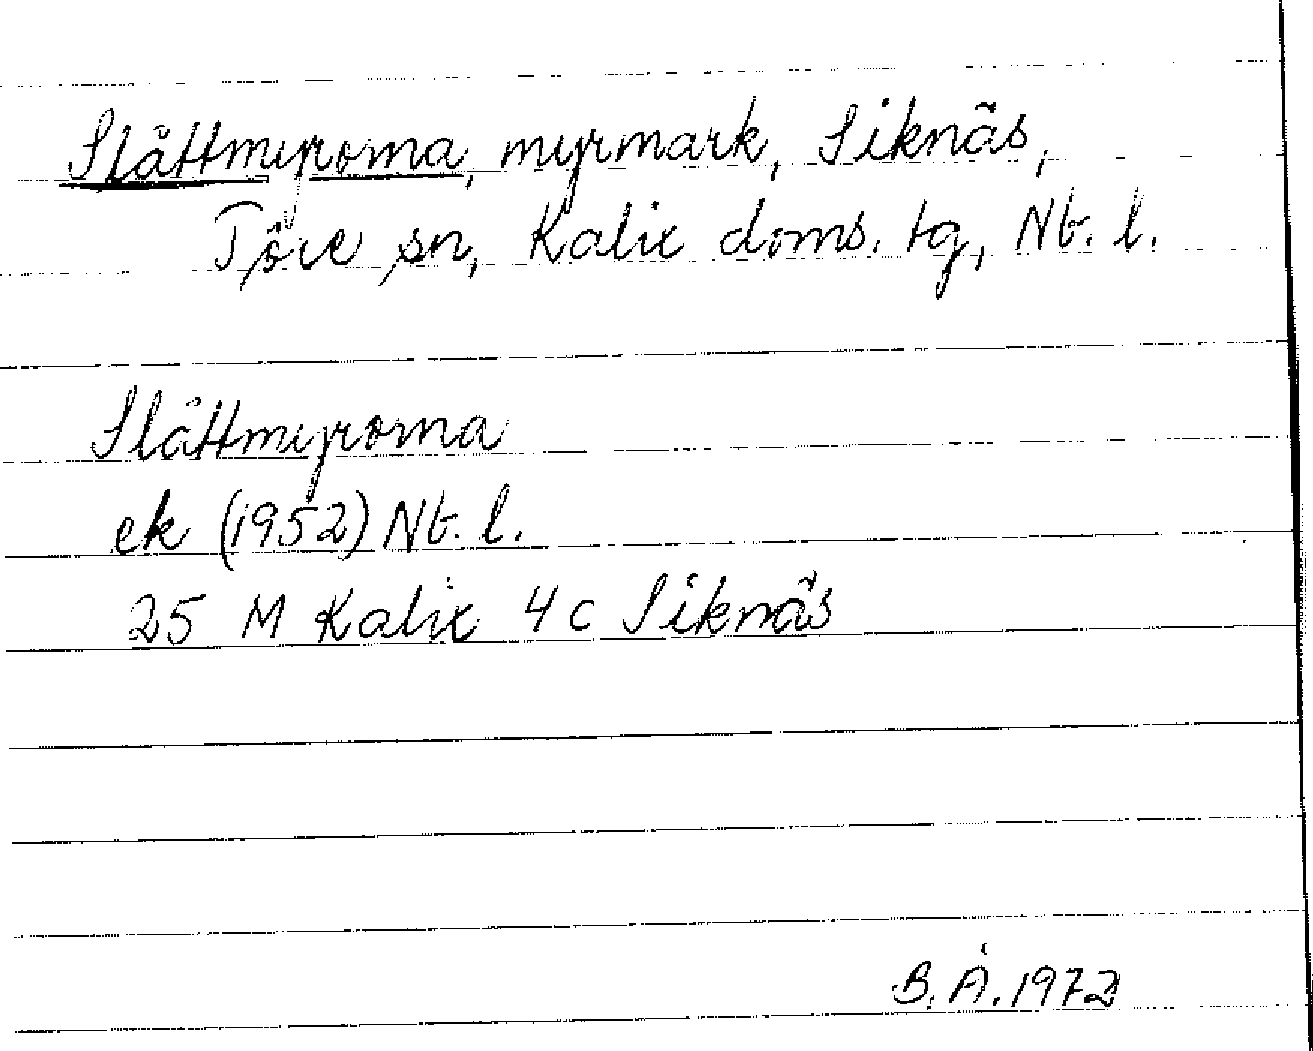 Slåttmyrorna, myrmark, Siknäs,
Töre sn, Kalix doms. tg, Nb. l.
Slåttmyrorna
ek (1952) Nb. l.
25 M Kalix 4 c Siknäs
B. Å. 1972